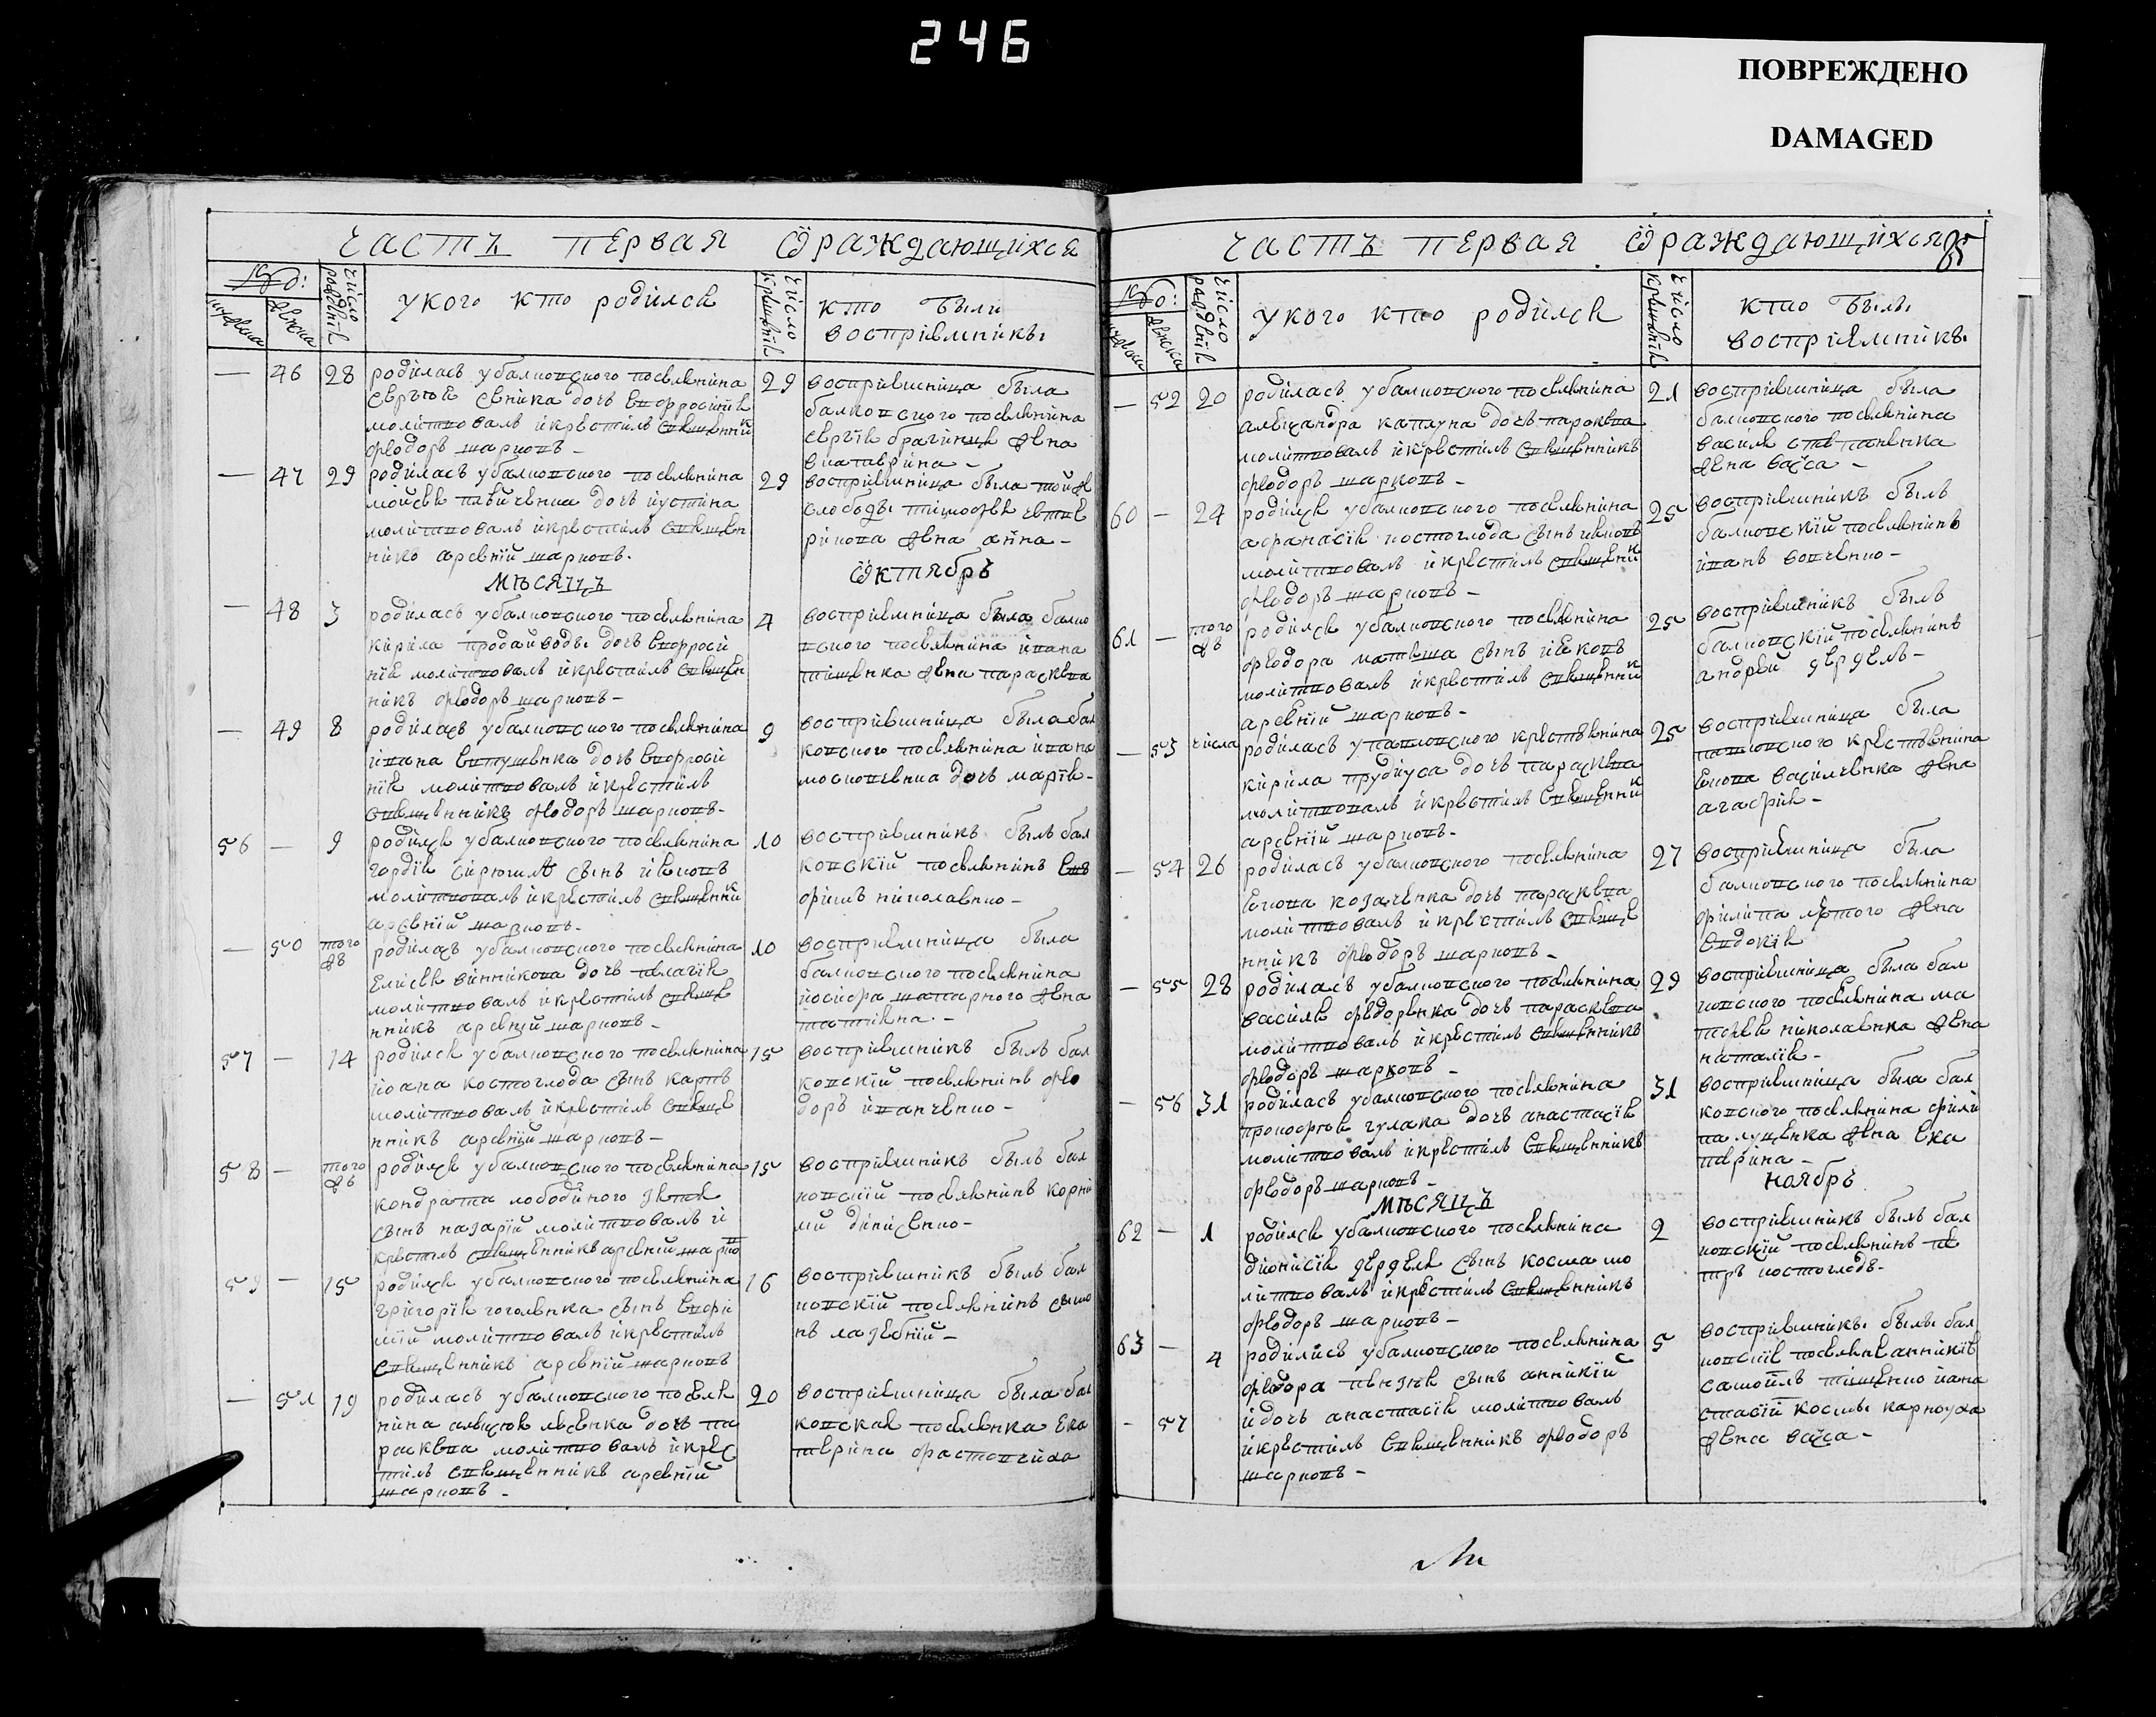 246
ПОВРЕЖДЕНО
DAMAGED
часть первая ѿ раждающихся
число рождения
у кого кто родился
число крещения
кто были
восприемники
46 28 родилась у балковского поселянина 29
дочь евфросиния
молитвовал и крестил священник
феодор шарков -
восприемница была
балковского поселянина
47 29 родилась у балковского поселянина 29
дочь иустина
молитвовал и крестил священ
ник арсений шарков.
восприемница была той же
слободы тимофея
жена анна -
мѣсяцъ ѿктябрь
48 3 родилась у балковского поселянина 4
кирила продайводы дочь евфроси
ния молитвовал и крестил священ
ник феодор шарков -
восприемница была балко
вского поселянина ивана
тищенка жена парасква
49 8 родилась у балковского поселянина 9
ивана евтушенка дочь евфроси
ния молитвовал и крестил
священник феодор шарков -
восприемница была бал
ковского поселянина ивана
дочь мария -
56 9 родился у балковского поселянина 10
гордия сын иаков
молитвовал и крестил священник
арсений шарков.
восприемник был бал
ковский поселянин евъ
фим николаенко -
50 того же родилась у балковского поселянина 10
елисея винникова дочь пелагия
молитвовал и крестил свяще
нник арсений шарков -
восприемница была
балковского поселянина
иосифа шаparного жена
татиана. -
57 14 родился у балковского поселянина 15
иоана костоглода сын карп
молитвовал и крестил свяще
нник арсений шарков -
восприемник был бал
ковский поселянин фео
дор иванченко -
58 того же родился у балковского поселянина 15
кондрата лободиного зятя
сын назарий молитвовал и
крестил священник арсений шарко
восприемник был бал
ковский поселянин корни
лий денисенко -
59 15 родился у балковского поселянина 16
григория гоголенка сын евфи
мий молитвовал и крестил
священник арсений шарков
восприемник был бал
ковский поселянин симо
н лазебный -
51 19 родилась у балковского поселя 20
нина алексея лысенка дочь па
расквa молитвовал и крес
тил священник арсений
шарков -
восприемница была бал
ковская поселянка ека
терина
часть первая ѿ раждающихся
85
число рождения
у кого кто родился
число крещения
кто были
восприемники
52 20 родилась у балковского поселянина 21
александра каплуна дочь парасква
молитвовал и крестил священник
феодор шарков -
восприемница была
балковского поселянина
василя степаненка
жена васса -
60 24 родился у балковского поселянина 25
афанасия костоглода сын иаков
молитвовал и крестил священник
феодор шарков -
восприемник был
балковский поселянин
иван
61 того же родился у балковского поселянина 25
феодора сын иаков
молитвовал и крестил священник
арсений шарков -
восприемник был
балковский поселянин
андрей дердель -
53 числа родилась у павловского крестянина 25
кирила прудиуса дочь парасква
молитвовал и крестил священник
арсений шарков -
восприемница была
павловского крестянина
якова василченка жена
агафия -
54 26 родилась у балковского поселянина 27
якова козаченка дочь парасква
молитвовал и крестил свяще
нник феодор шарков -
восприемница была
балковского поселянина
филипа лютого жена
евдокия
55 28 родилась у балковского поселянина 29
василя федоренка дочь парасква
молитвовал и крестил священник
феодор шарков -
восприемница была бал
ковского поселянина ма
тфея николаенка жена
наталия -
56 31 родилась у балковского поселянина 31
прокофия гулака дочь анастасия
молитвовал и крестил священник
феодор шарков -
восприемница была бал
ковского поселянина фили
па луценка жена ека
терина -
мѣсяцъ ноябрь
62 1 родился у балковского поселянина 2
дионисия дердея сын косма мо
литвовал и крестил священник
феодор шарков -
восприемник был бал
ковский поселянин пе
тр костоглод -
63 4 родились у балковского поселянина 5
феодора сын аникий
57 и дочь анастасия молитвовал
и крестил священник феодор
шарков -
восприемники были бал
ковские поселяне аникие
самойл тищенко и ана
стасии космы карнауха
жена васса -